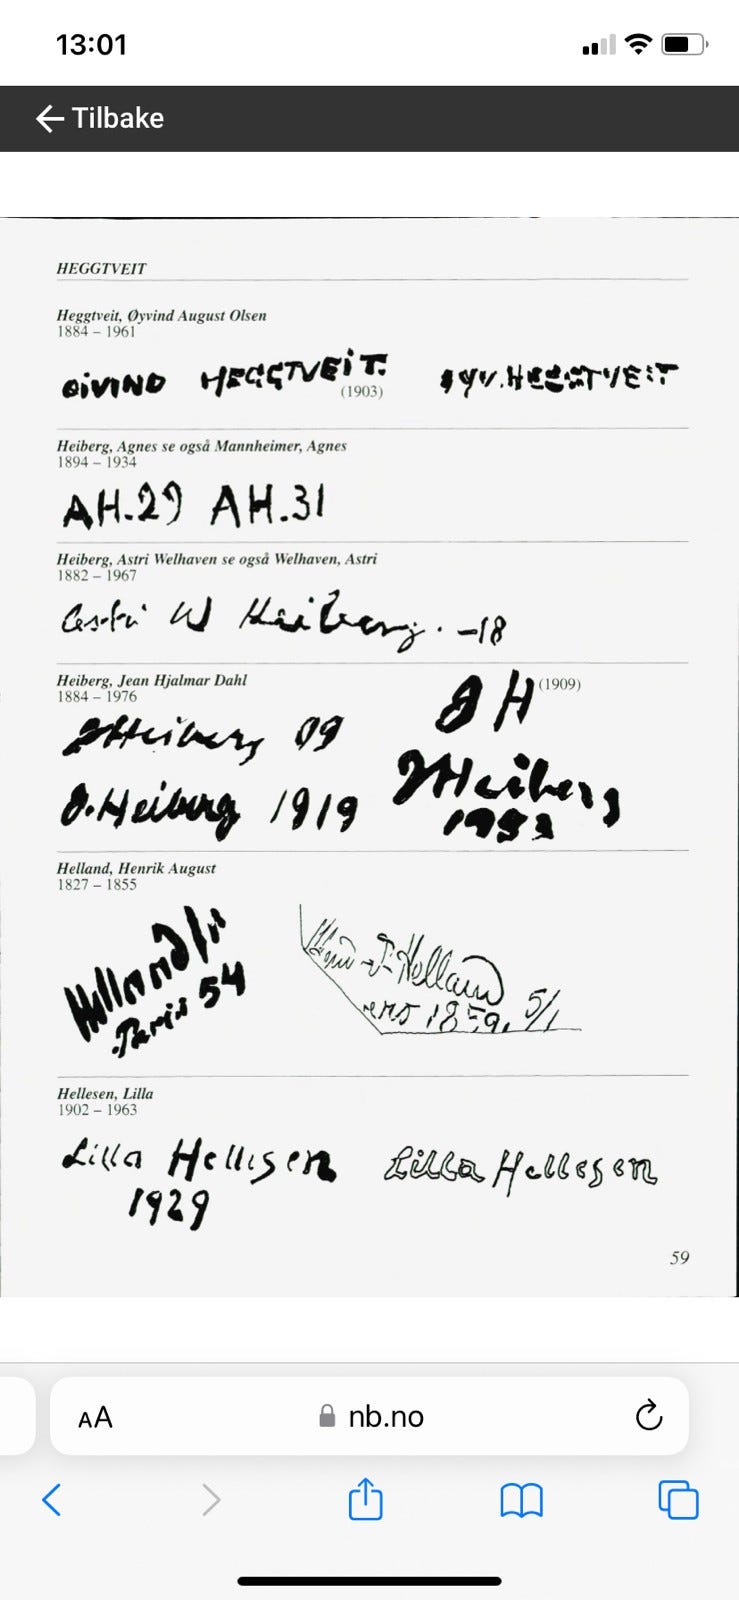 13:01
← Tilbake
HEGGTVEIT
Heggtveit, Øyvind August Olsen
1884 – 1961
ØIVIND HEGGTVEIT.
(1903)
ØYV. HEGGTVEIT
Heiberg, Agnes se også Mannheimer, Agnes
1894 – 1934
AH.29 AH.31
Heiberg, Astri Welhaven se også Welhaven, Astri
1882 – 1967
Astri W Heiberg. –18
Heiberg, Jean Hjalmar Dahl
1884 – 1976
JH (1909)
JHeiberg 09
J. Heiberg 1919
JHeiberg
Helland, Henrik August
1827 – 1855
Helland
Paris 54
Helland
5/1
Hellesen, Lilla
1902 – 1963
Lilla Hellesen
1929
Lilla Hellesen
59
AA
nb.no